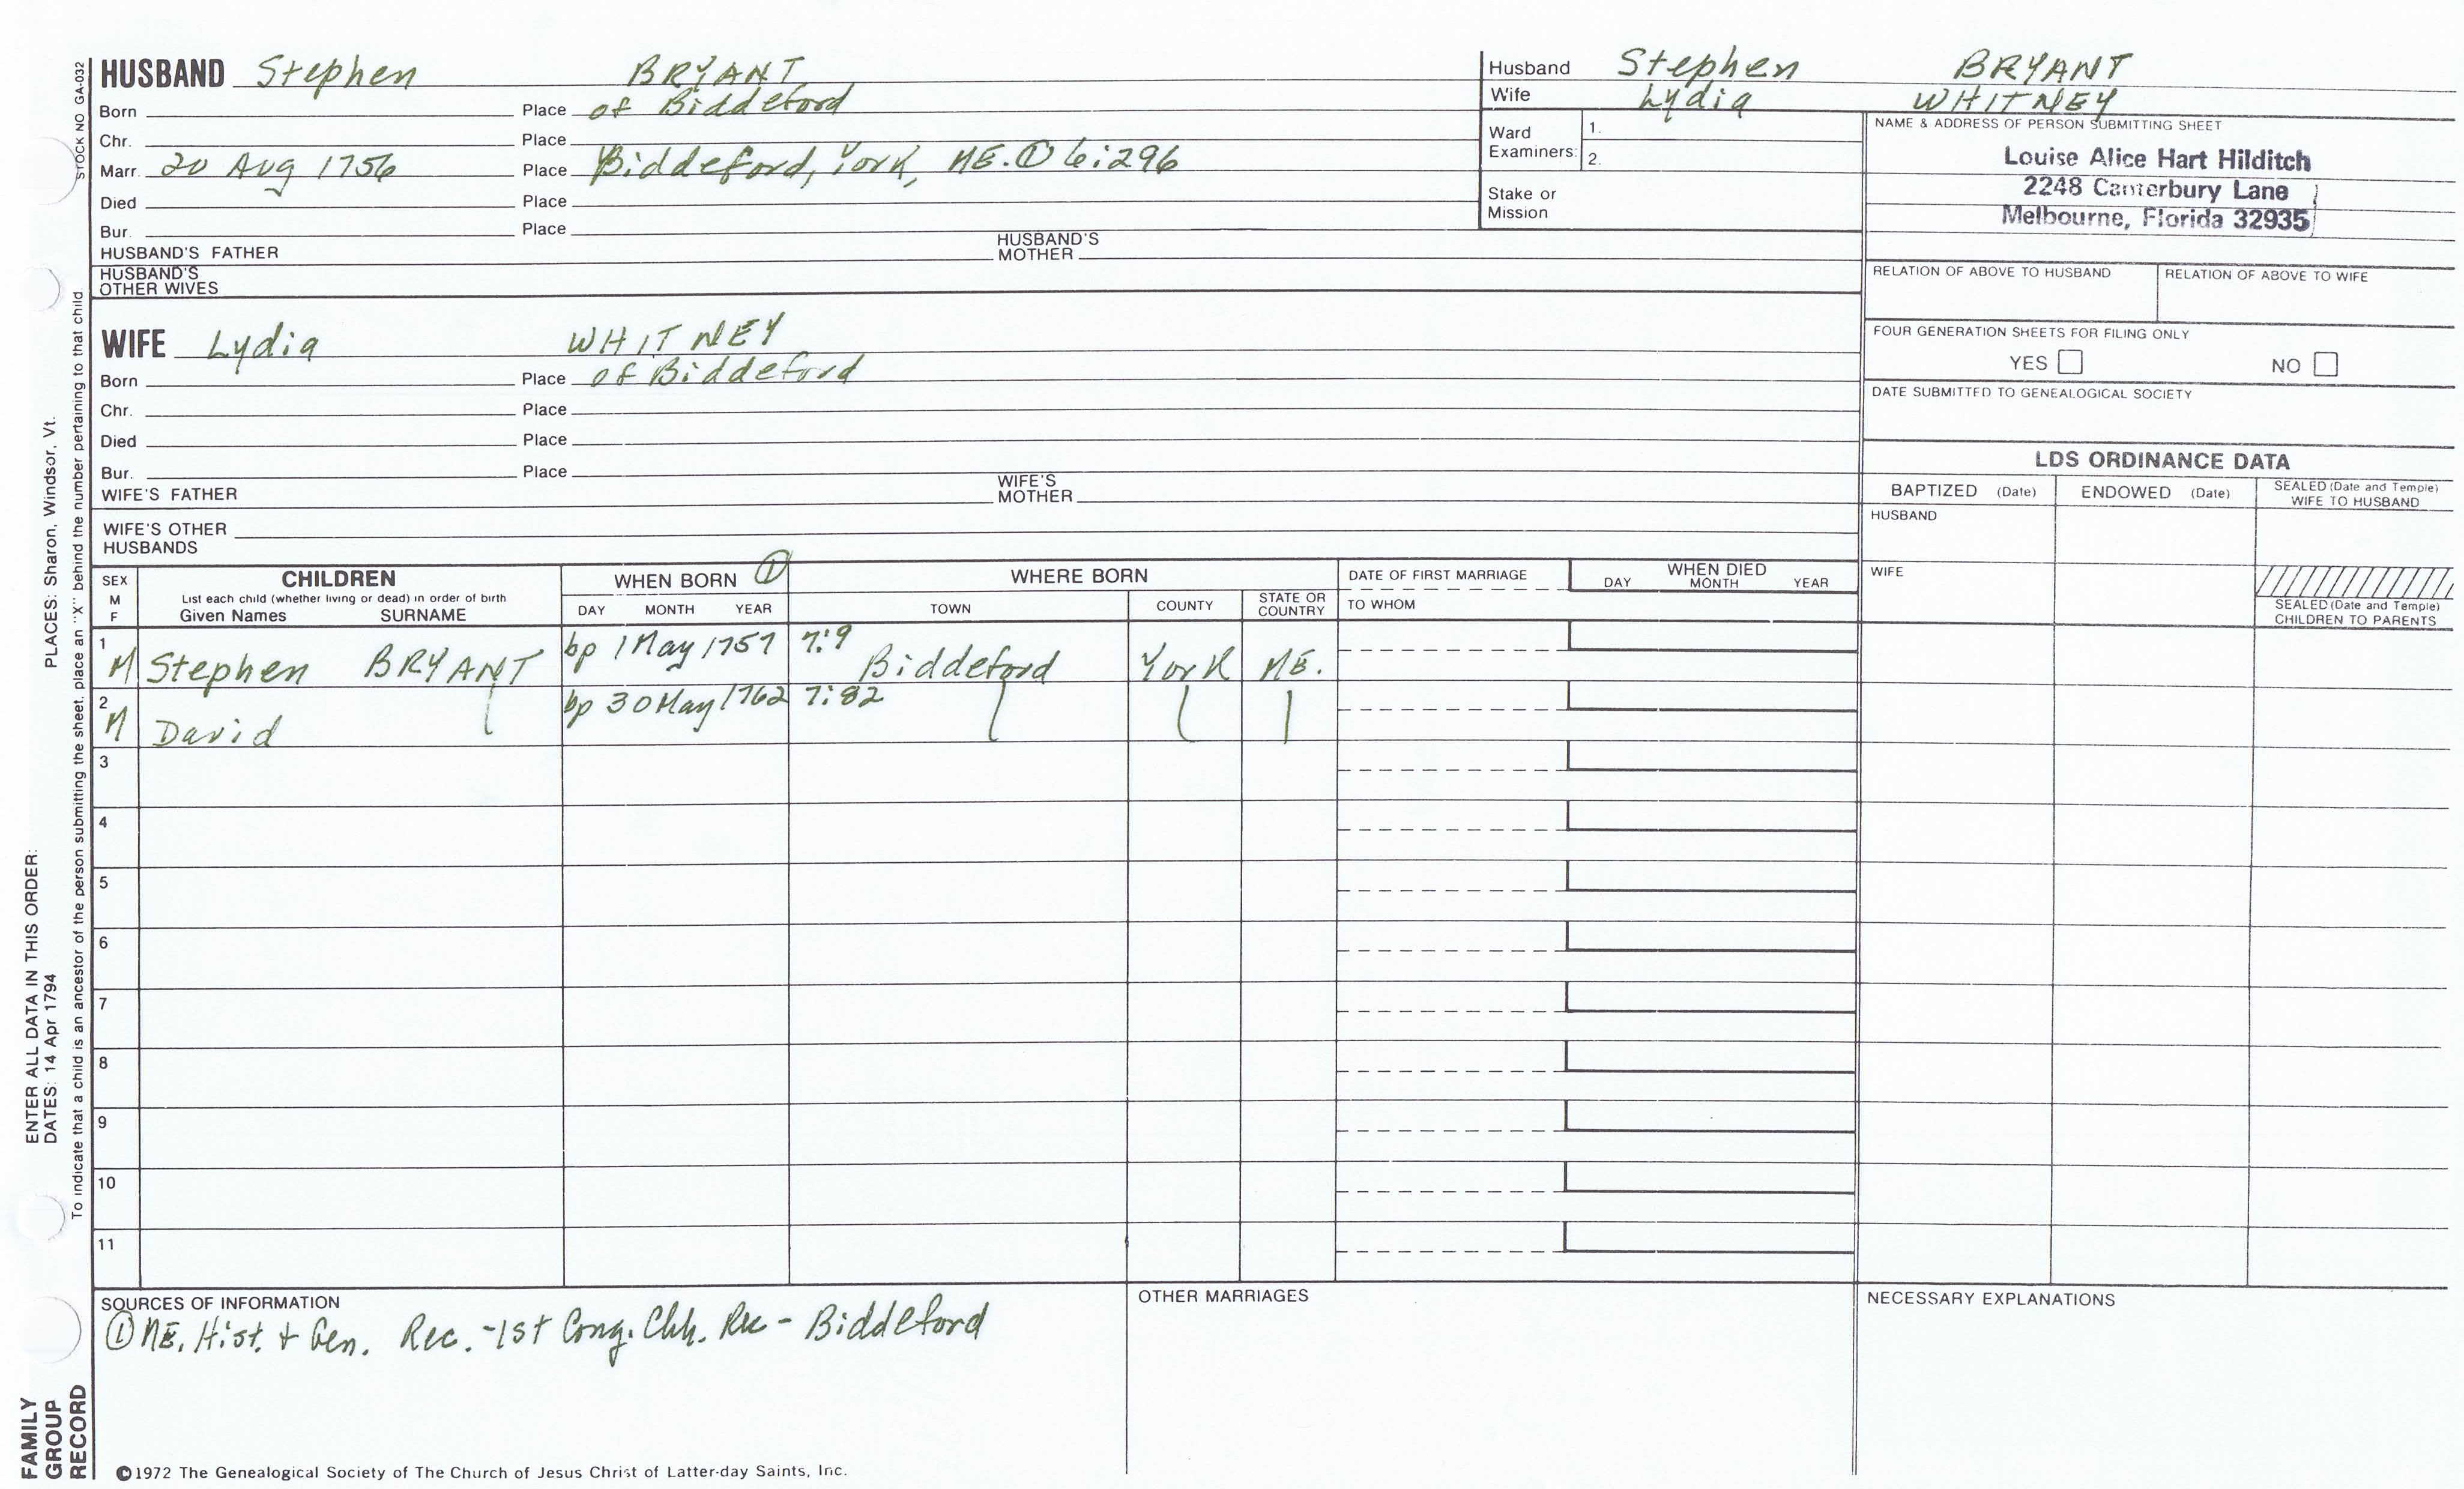 HUSBAND Stephen BRYANT
Born Place of Biddeford
Chr. Place
Marr. 20 Aug 1756 Place Biddeford, York, ME. ① 6:296
Died Place
Bur. Place
HUSBAND'S FATHER HUSBAND'S MOTHER
HUSBAND'S OTHER WIVES
WIFE Lydia WHITNEY
Born Place of Biddeford
Chr. Place
Died Place
Bur. Place
WIFE'S FATHER WIFE'S MOTHER
WIFE'S OTHER HUSBANDS
Husband Stephen BRYANT
Wife Lydia WHITNEY
Ward Examiners: 1.
2.
Stake or Mission
NAME & ADDRESS OF PERSON SUBMITTING SHEET
Louise Alice Hart Hilditch
2248 Canterbury Lane
Melbourne, Florida 32935
RELATION OF ABOVE TO HUSBAND RELATION OF ABOVE TO WIFE
FOUR GENERATION SHEETS FOR FILING ONLY
YES NO
DATE SUBMITTED TO GENEALOGICAL SOCIETY
LDS ORDINANCE DATA
BAPTIZED (Date) ENDOWED (Date) SEALED (Date and Temple) WIFE TO HUSBAND
HUSBAND
WIFE
SEALED (Date and Temple) CHILDREN TO PARENTS
SEX M F
CHILDREN
List each child (whether living or dead) in order of birth
Given Names SURNAME
WHEN BORN ①
DAY MONTH YEAR
WHERE BORN
TOWN COUNTY STATE OR COUNTRY
DATE OF FIRST MARRIAGE
TO WHOM
WHEN DIED
DAY MONTH YEAR
1 M Stephen BRYANT bp 1 May 1757 7:9 Biddeford York ME.
2 M David bp 30 May 1762 7:82
3
4
5
6
7
8
9
10
11
SOURCES OF INFORMATION
① ME. Hist. + Gen. Rec. - 1st Cong. Chh. Rec - Biddeford
OTHER MARRIAGES
NECESSARY EXPLANATIONS
©1972 The Genealogical Society of The Church of Jesus Christ of Latter-day Saints, Inc.
STOCK NO GA-032
To indicate that a child is an ancestor of the person submitting the sheet, place an "X" behind the number pertaining to that child.
ENTER ALL DATA IN THIS ORDER:
DATES: 14 Apr 1794 PLACES: Sharon, Windsor, Vt.
FAMILY
GROUP
RECORD